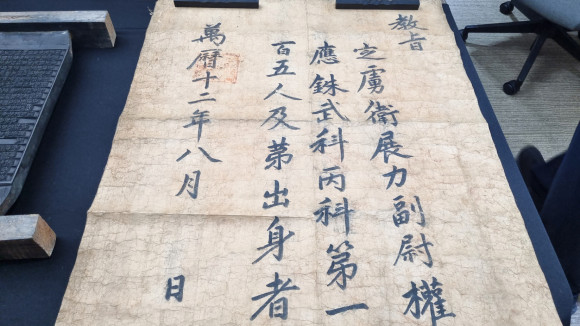 教旨
定虜衛展力副尉權
應銖武科丙科第一
百五人及苐出身者
萬曆十二年八月　日